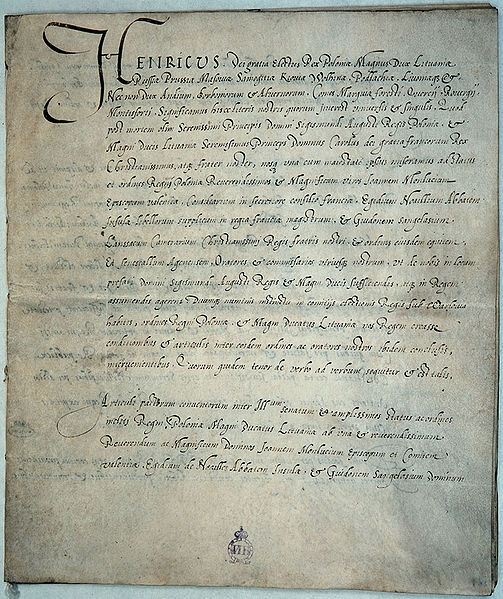 HENRICUS Dei gratia Electus Rex Poloniæ Magnus Dux Lituaniæ
Russiæ Prussiæ Masoviæ Samogitiæ Kioviæ Volhinæ, Podlachiæ, Livoniæq; &
Necnon Dux Andium, Borboniorum & Alvernorum, Comes Marchiæ foresti Quercii, Rovergii
Montisforti, Significamus hisce literis nostris quorum interest universis & singulis, Quod
post mortem olim Serenissimi Principis Domini Sigismundi Augusti Regis Poloniæ, &
Magni Ducis Lituaniæ Serenissimus Princeps Dominus Carolus dei gratia francorum Rex
Christianissimus, atq; frater noster, nosq; una cum maiestate ipsius miseramus ad Status
et ordines Regni Poloniæ Reverendissimos & Magnificum viros Ioannem Monlucium
Episcopum valentiæ, Consiliarium in secretiore consilio franciæ, Egidium Noallium Abbatem
Insulæ libellorum supplicum in regia franciæ magistrum, & Guidonem Sangelasium
Lansacum Camerarium Christianissimi Regis fratris nostri & ordinis eiusdem equitem
Et Senescallum Agenensem, Oratores & commissarios utriusq; nostrum, ut de nobis in locum
præfati Domini Sigismundi Augusti Regis & Magni Ducis sufficiendis, atq; in Regem
assumendis agerent, Divinoq; numinis instinctu in comitiis electionis Regis sub Varsovia
habitis, ordines Regni Poloniæ & Magni Ducatus Lituaniæ nos Regem creasse
conditionibus & articulis inter eosdem ordines ac oratores nostros ibidem conclusis,
intervenientibus, Quorum quidem tenor de verbo ad verbum sequitur & est talis,
Articuli pactorum conventorum inter Ill.um senatum & amplissimos status ac ordines
inclyti Regni Poloniæ Magni Ducatus Lituaniæ ab una & reverendissimum
Reverendum ac Magnificum Dominos Ioannem Monlucium Episcopum et Comitem
valentiæ, Egidium de Noailles Abbatem Insulæ, & Guidonem Sangelasium Dominum